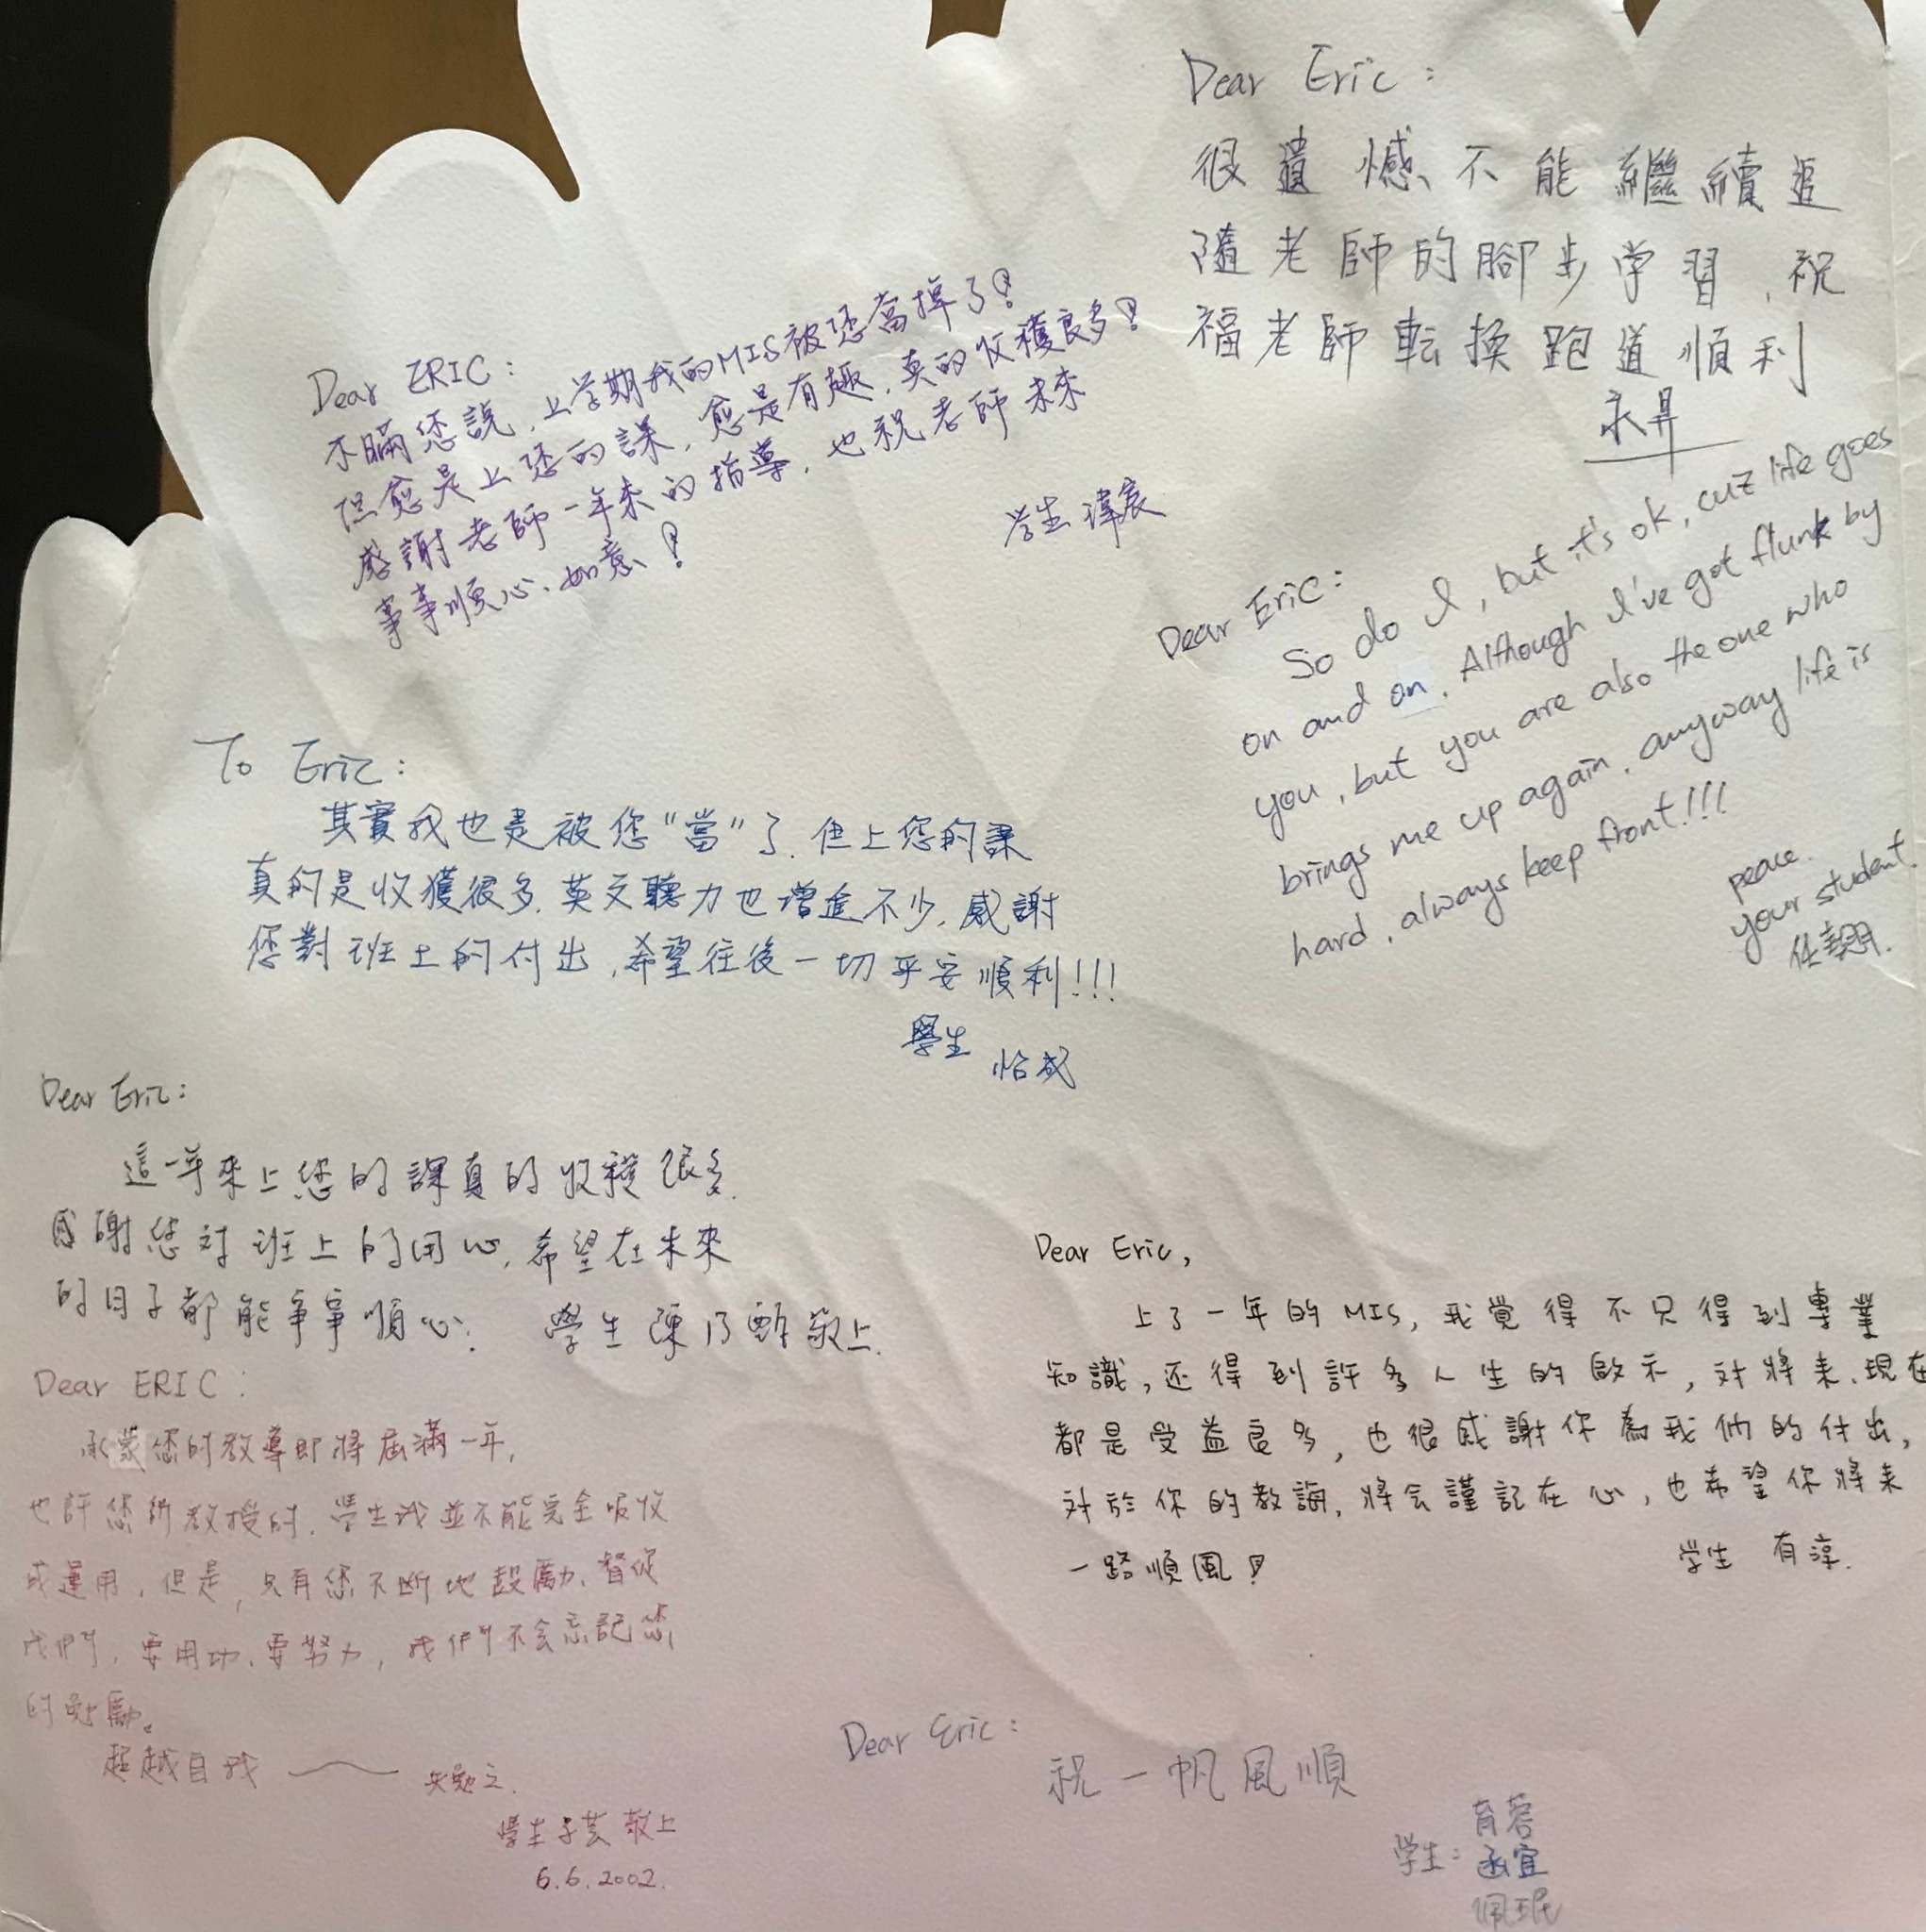 Dear Eric:
很遺憾不能繼續追
隨老師的腳步学習,祝
福老師転換跑道順利
永昇
Dear ERIC:
不瞞您說,上学期我的MIS被您當掉了!
但愈是上您的課,愈是有趣,真的收穫良多!
感謝老師一年來的指導,也祝老師未來
事事順心、如意!
学生 瑋宸
Dear Eric:
So do I, but it's ok, cuz life goes
on and on. Although I've got flunk by
you, but you are also the one who
brings me up again, anyway life is
hard, always keep front!!!
peace.
your student.
任翾.
To Eric:
其實我也是被您"當"了.但上您的課
真的是收獲很多.英文聽力也增進不少,感謝
您對班上的付出,希望往後一切平安順利!!!
學生 怡成
Dear Eric:
這一年來上您的課真的收穫很多.
感謝您对班上的用心,希望在未來
的日子都能事事順心. 學生 陳乃 敬上.
Dear Eric,
上了一年的MIS,我覚得不只得到專業
知識,还得到許多人生的啟示,对將来、現在
都是受益良多,也很感謝你為我們的付出,
对於你的教誨,將会謹記在心,也希望你將来
一路順風!
学生 有淳.
Dear ERIC:
承蒙您的教導即將屆滿一年,
也許您所教授的,學生我並不能完全吸收
或運用,但是,只有您不斷地鼓勵、督促
我們,要用功、要努力,我們不会忘記您
的勉勵。
超越自我 —— 共勉之.
學生 子芸 敬上
6.6.2002.
Dear Eric:
祝一帆風順
学生: 育蓉
函宜
佩珉